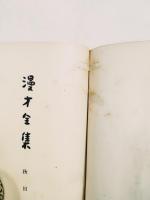 漫才全集